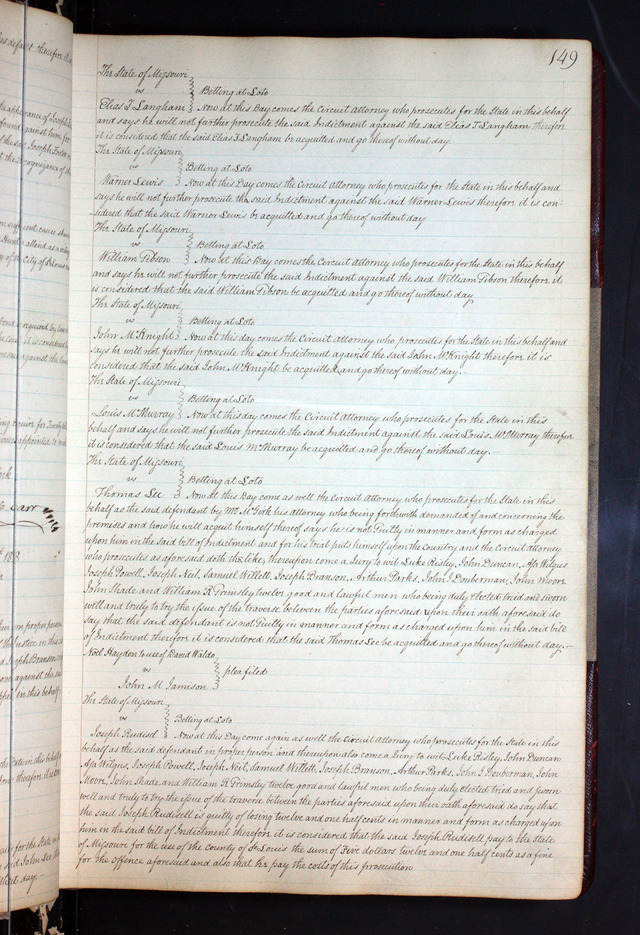 149
The State of Missouri
vs Betting at Loto
Elias T Langham Now at this Day comes the Circuit Attorney who prosecutes for the State in this behalf
and says he will not further prosecute the said Indictment against the said Elias T Langham therefore
it is considered that the said Elias T Langham be acquitted and go thereof without day.
The State of Missouri
vs Betting at Loto
Warner Lewis Now at this Day comes the Circuit Attorney who prosecutes for the state in this behalf and
says he will not further prosecute the said Indictment against the said Warner Lewis therefore it is con-
sidered that the said Warner Lewis be acquitted and go thereof without day
The State of Missouri
vs Betting at Loto
William Tibson Now at this Day comes the Circuit Attorney who prosecutes for the State in this behalf
and says he will not further prosecute the said Indictment against the said William Tibson therefore it
is considered that the said William Tibson be acquitted and go thereof without day
The State of Missouri
vs Betting at Loto
John McKnight Now at this day comes the Circuit Attorney who prosecutes for the State in this behalf and
says he will not further prosecute the said Indictment against the said John McKnight therefore it is
considered that the said John McKnight be acquitted and go thereof without day.-
The State of Missouri
vs Betting at Loto
Louis McMurray Now at this day comes the Circuit Attorney who prosecutes for the State in this
behalf and says he will not further prosecute the said Indictment against the said Louis McMurray therefore
it is considered that the said Louis McMurray be acquitted and go thereof without day.-
The State of Missouri
vs Betting at Loto
Thomas Lee Now at this Day come as well the Circuit Attorney who prosecutes for the State in this
behalf as the said defendant by Mr McGirk his attorney who being forthwith demanded of and concerning the
premises and how he will acquit himself thereof says he is not Guilty in manner and form as charged
upon him in the said bill of Indictment and for his trial puts himself upon the Country and the Circuit Attorney
who prosecutes as aforesaid doth the like, thereupon come a Jury to wit Luke Risley, John Duncan, Asa Wilgus
Joseph Powell, Joseph Neil, Samuel Willett, Joseph Branson, Arthur Parks, John J Douberman, John Moore
John Shade and William R Grimsley twelve good and lawful men who being duly elected tried and sworn
well and truly to try the issue of the traverse between the parties aforesaid upon their oath aforesaid do
say that the said defendant is not Guilty in manner and form as charged upon him in the said bill
of Indictment therefore it is considered that the said Thomas Lee be acquitted and go thereof without day.-
Noel Hayden to use of David Waldo
vs plea filed
John M Jamison
The State of Missouri
vs Betting at Loto
Joseph Rudisel Now at this Day come again as well the Circuit Attorney who prosecutes for the State in this
behalf as the said defendant in proper person and thereupon also come a Jury to wit Luke Risley, John Duncan
Asa Wilgus, Joseph Powell, Joseph Neil, Samuel Willett, Joseph Branson, Arthur Parks, John J Douberman, John
Moore, John Shade and William R Grimsley twelve good and lawful men who being duly elected tried and sworn
well and truly to try the issue of the traverse between the parties aforesaid upon their oath aforesaid do say that
the said Joseph Rudesell is guilty of losing twelve and one half cents in manner and form as charged upon
him in the said bill of Indictment therefore it is considered that the said Joseph Rudisell pay to the state
of Missouri for the use of the County of St Louis the sum of Five dollars twelve and one half cents as a fine
for the offence aforesaid and also that he pay the costs of this prosecution